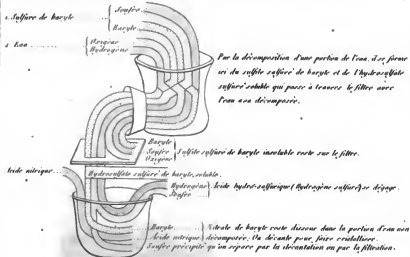 1. Sulfure de baryte
Soufre
Baryte
2 Eau
Oxigène
Hydrogène
Par la décomposition d'une portion de l'eau, il se forme
ici du sulfite sulfuré de baryte et de l'hydrosulfate
sulfuré soluble qui passe à travers le filtre avec
l'eau décomposée.
Baryte
Soufre
Oxigène
Sulfite sulfuré de baryte insoluble reste sur le filtre.
Acide nitrique
Hydrosulfate sulfuré de baryte, soluble.
Hydrogène
Soufre
Acide hydro-sulfurique (Hydrogène sulfuré) se dégage.
Baryte
Acide nitrique
Nitrate de baryte reste dissous dans la portion d'eau non
décomposée. On décante pour faire cristalliser.
Soufre précipité qu'on sépare par la décantation ou par la filtration.